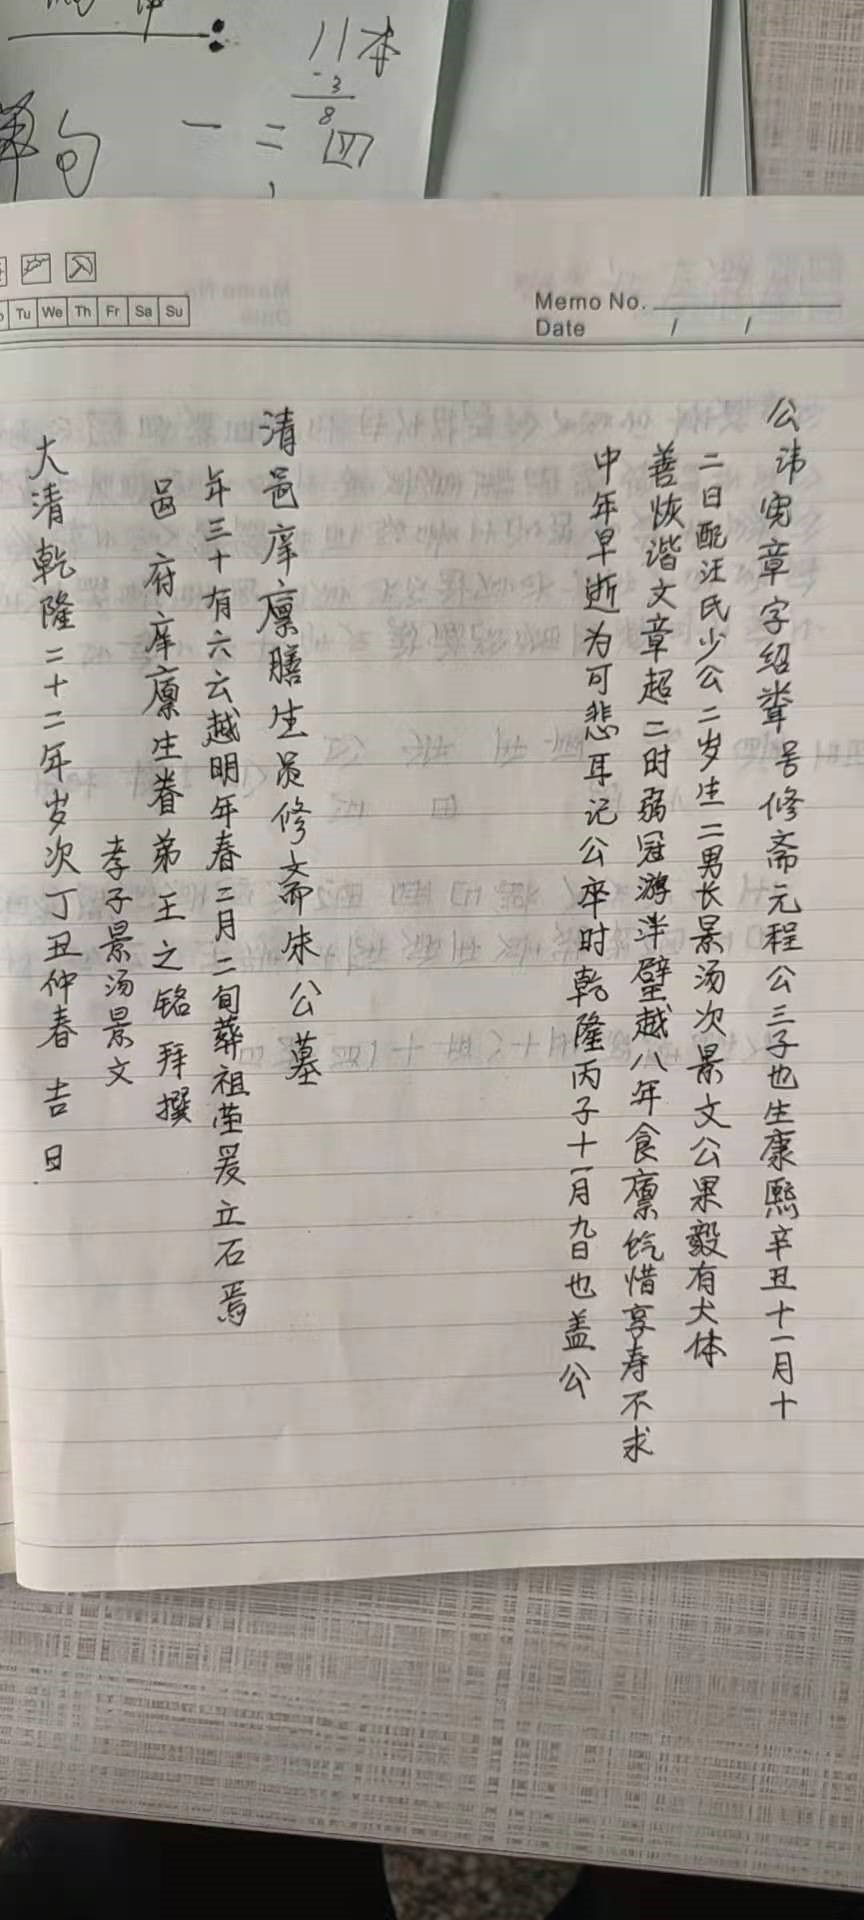 11本
-3
8
句 一 二 四
Tu We Th Fr Sa Su
Memo No.
Date / /
公讳宪章字绍辈号修斋元程公三子也生康熙辛丑十一月十
二日配汪氏少公二岁生二男长景汤次景文公果毅有大体
善恢谐文章超二时弱冠游泮壁越八年食廪饩惜享寿不求
中年早逝为可悲耳记公卒时乾隆丙子十一月九日也盖公
清邑庠廪膳生员修斋朱公墓
年三十有六云越明年春二月二旬葬祖茔爰立石焉
邑府庠廪生眷弟王之铭拜撰
孝子景汤景文
大清乾隆二十二年岁次丁丑仲春吉日